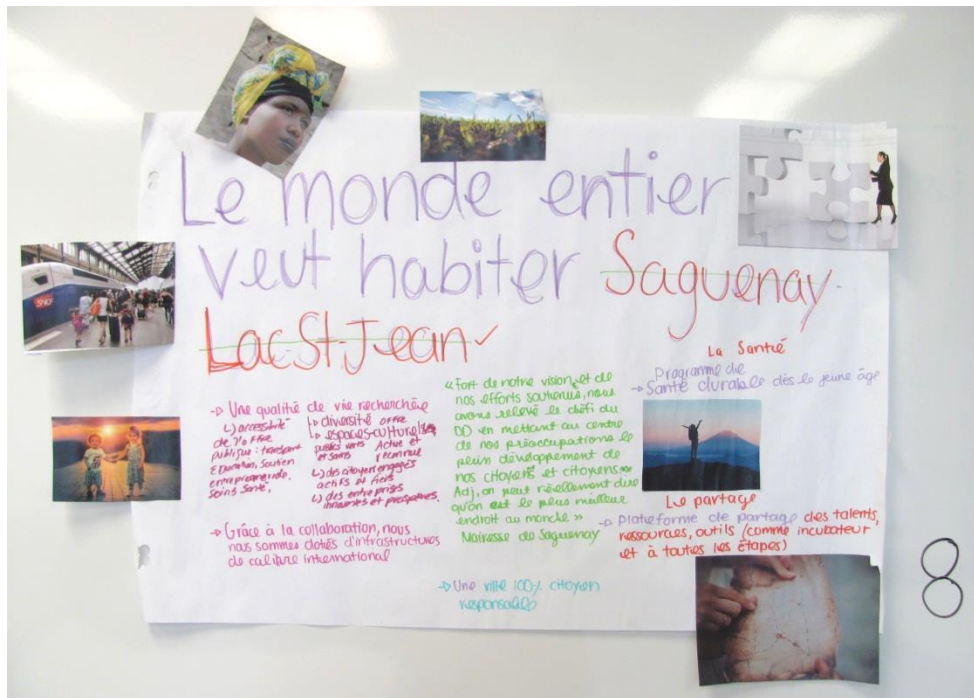 Le monde entier
veut habiter Saguenay-
Lac-St-Jean
-> Une qualité de vie recherchée
↳ accessibilité
de l'offre
publique : transport
Éducation, soutien
entrepreneuriale,
soins santé,
↳ diversité offre
↳ espaces culturels
publics verts Active et
et sains reconnue
↳ des citoyens engagés
actifs et fiers
↳ des entreprises
innovantes et prospères.
-> Grâce à la collaboration, nous
nous sommes dotés d'infrastructures
de calibre international
« Fort de notre vision et de
nos efforts soutenus, nous
avons relevé le défi du
DD en mettant au centre
de nos préoccupations le
plein développement de
nos citoyens et citoyennes
Adj, on peut réellement dire
qu'on est le plus meilleur
endroit au monde »
Mairesse de Saguenay
-> Une ville 100% citoyen
responsable
La Santé
Programme de
-> Santé durable dès le jeune âge
Le partage
-> Plateforme de partage des talents,
ressources, outils (comme incubateur
et à toutes les étapes)
SNCF
8